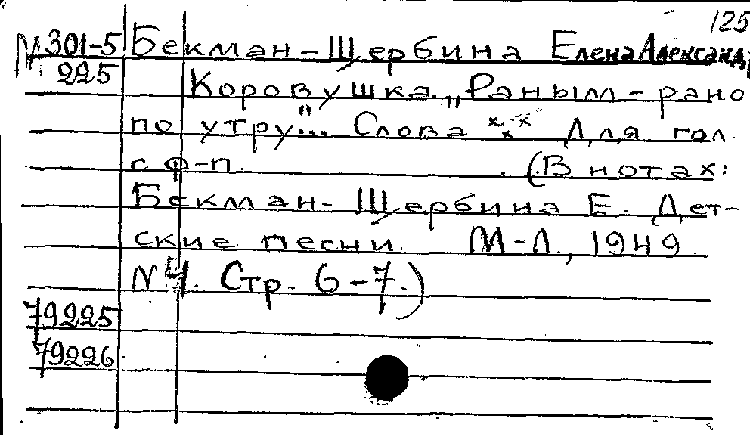 125
М 301-5 Бекман-Щербина Елена Александр
225 Коровушка. „Раным-рано
по утру"... Слова *** Для гол.
с ф-п. (В нотах:
Бекман-Щербина Е. Дет-
ские песни М-Л, 1949
N 4. Стр. 6-7.)
79225
79226